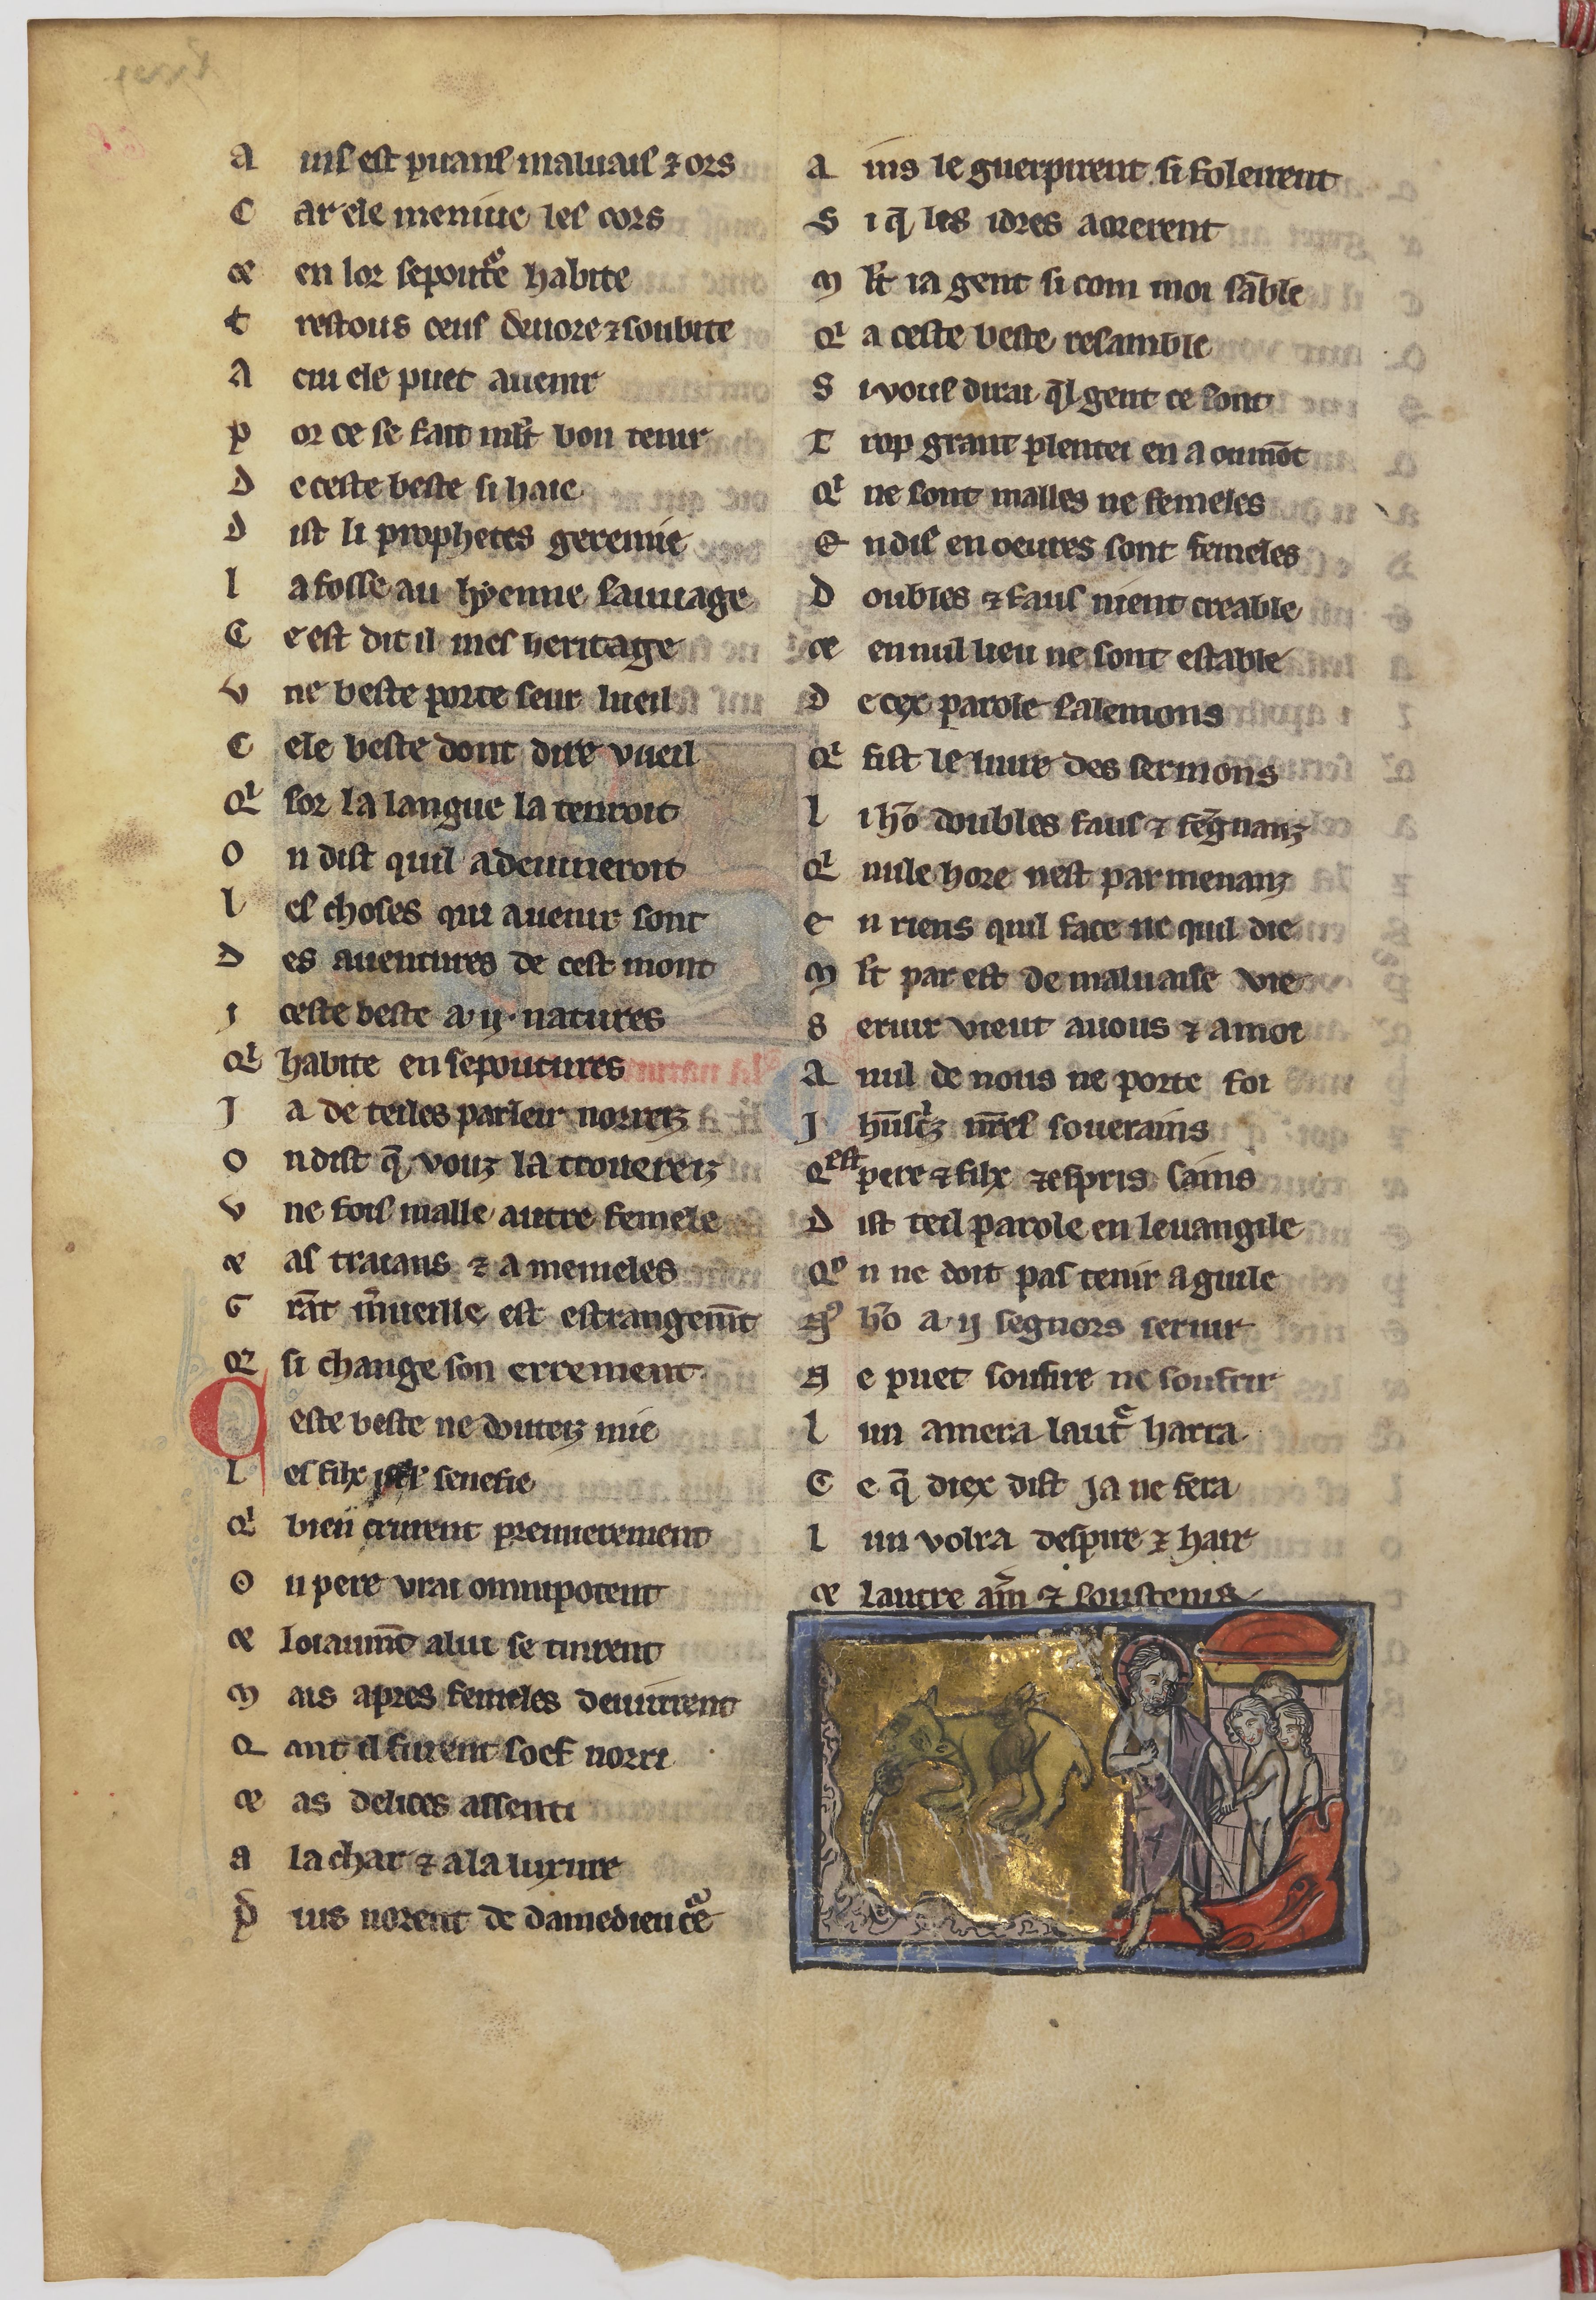 A inſ eſt puanſ maluaiſ ⁊ ors
C ar ele meniue leſ cors
⁊ en lor sepoutᵉ habite
t restous ceuſ deuore ⁊ soubite
A cui ele puet auenir
p or ce se fait ml̄t bon tenir
D e ceste beste si haie
D ist li prophetes geremie
l a fosse au hyenne sauuage
C e est dit il mes heritage
v ne beste porte seur lueil
C ele beste dont dire vueil
Qͥ sor la langue la tenroit
O n dist quil adeuineroit
l eſ choses qui auenir sont
D es auentures de cest mont
j ceste beste a·ij·natures
Qͥ habite en sepoutures
J a de teiles parleir norreiz
O n dist q̄ vouz la trouereiz
v ne foiſ malle autre femele
⁊ as traians ⁊ a memeles
G rāt m̄ueille est estrangem̄t
Qͥ si change son errement
C este beste ne douteiz mie
L eſ filx iſrl senefie
Qͥ bien crurent premierement
O u pere vrai omnipotent
⁊ loiaum̄t a lui se tinrent
M ais apres femeles deuinrent
Q ant il furent soef norri
⁊ as delices assenti
A la char ⁊ a la luxure
P uis norent de damedieu cᵃe
A ins le guerpirent si foleirent
S i q̄ les idres aorerent
M l̄t i a gent si com moi sāble
Qͥ a ceste beste resamble
S i vouſ dirai q̄l gent ce sont
T rop grant plentei en a ou mōt
Qͥ ne sont malles ne femeles
E n dis en oeures sont femeles
D oubles ⁊ fauſ nient creable
⁊ en nul lieu ne sont estable
D e cex parole salemons
Qͥ fist le liure des sermons
l i hō doubles fauſ ⁊ fegnanz
Qͥ nule hore nest parmenanz
E n riens quil face ne quil die
M l̄t par est de maluaise vie
S eruir vient a vous ⁊ a moi
A nul de nous ne porte foi
J hūſcͥz nr̄eſ souerains
Qͥ est pere ⁊ filx ⁊ espris sains
D ist teil parole en leuangile
Qͦ n ne doit pas tenir a guile
Nͦ hō a·ij segnors seruir
N e puet soufire ne soufrir
l un amera lautᵉ harra
C e q̄ diex dist ja ne fera
l un volra despire ⁊ hair
⁊ lautre am̄ ⁊ soustenir